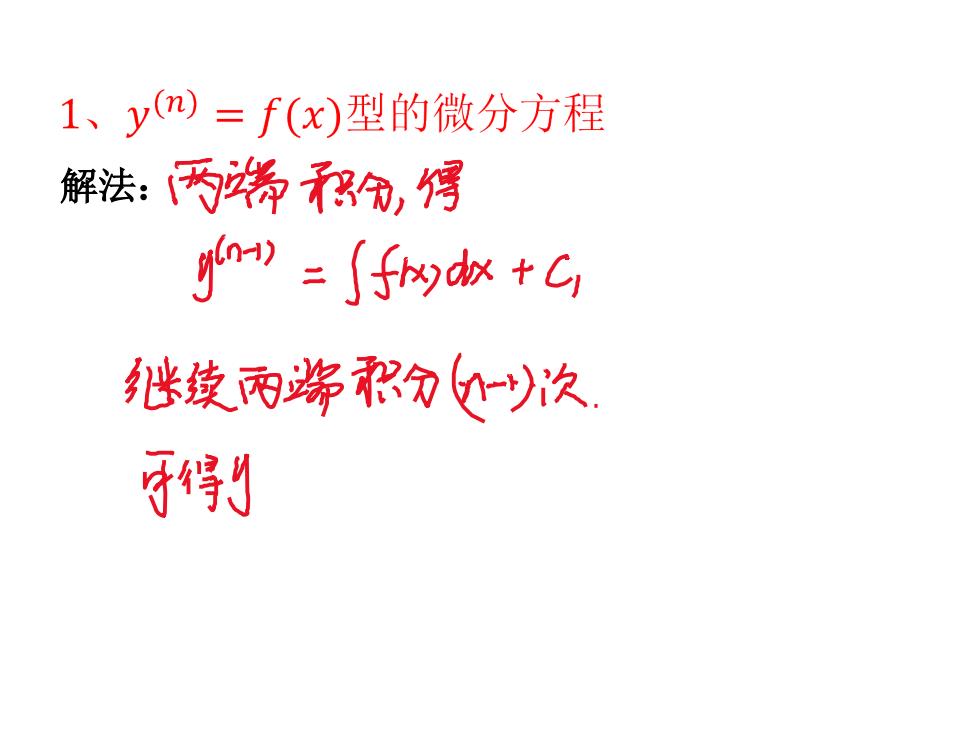 1、y⁽ⁿ⁾ = f(x)型的微分方程
解法：两端积分,得
y⁽ⁿ⁻¹⁾ = ∫f(x)dx + C₁
继续两端积分(n-1)次.
可得y